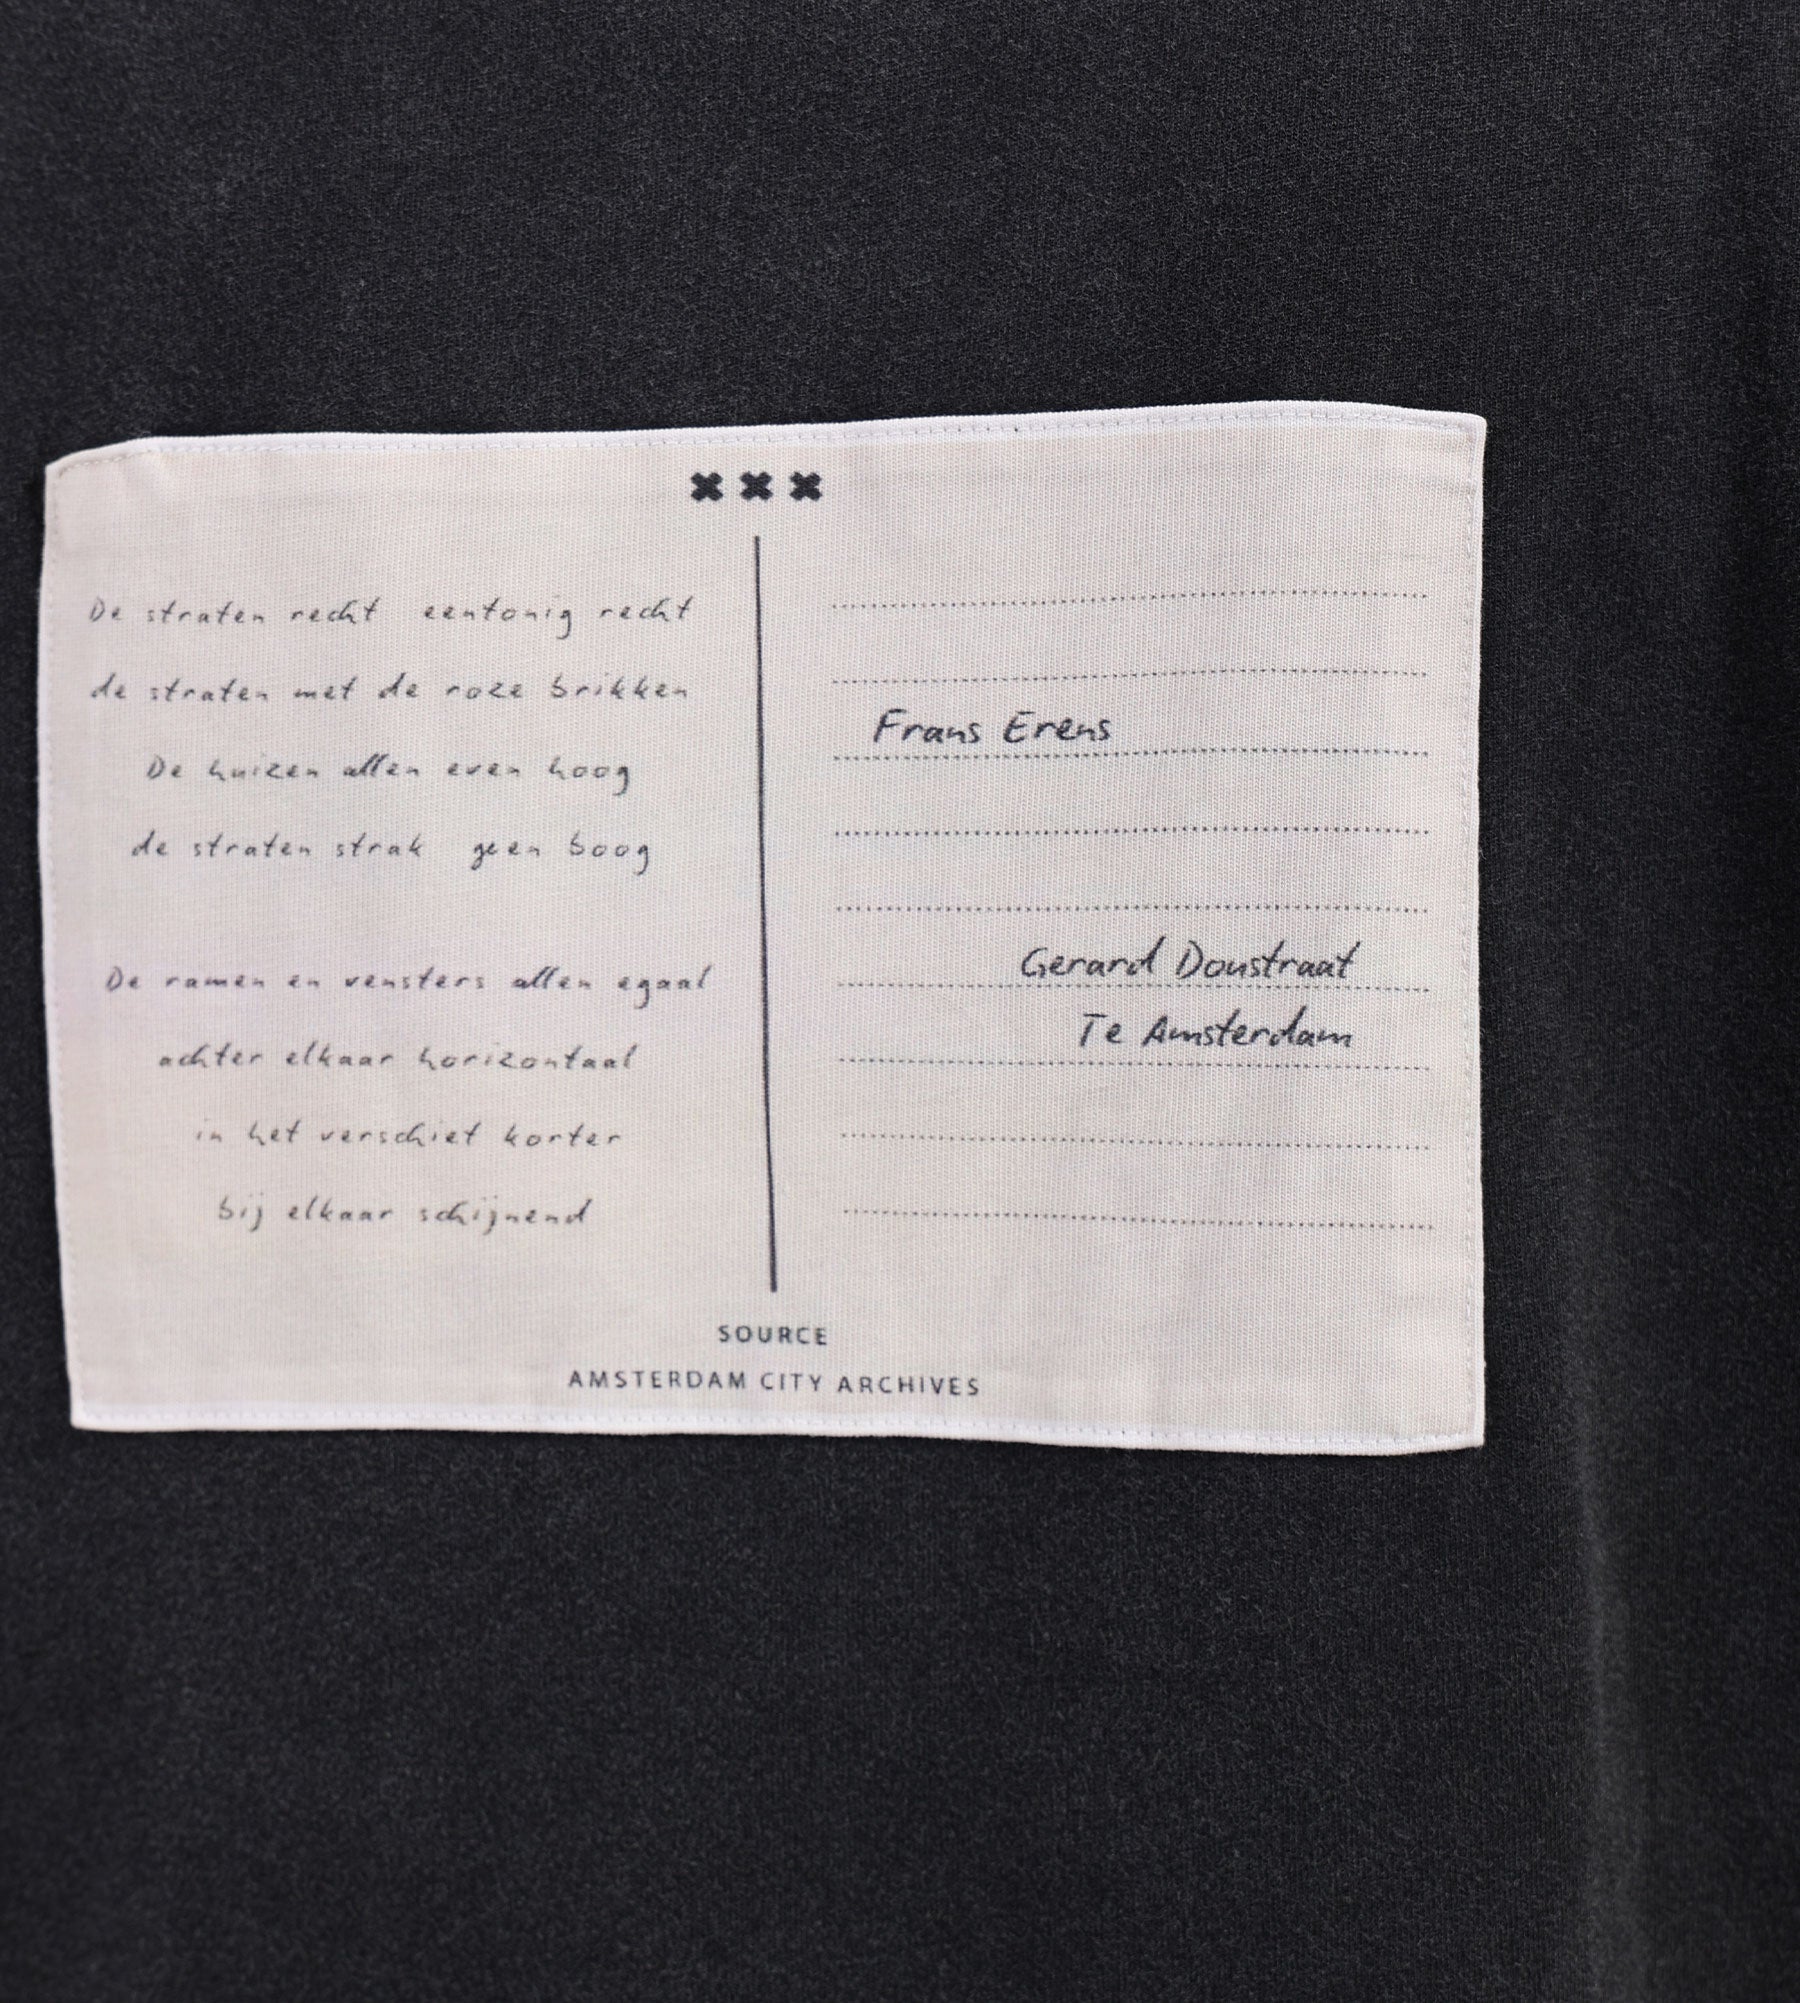 De straten recht eentonig recht
de straten met de roze brikken
De huizen allen even hoog
de straten strak geen boog
De ramen en vensters allen egaal
achter elkaar horizontaal
in het verschiet korter
bij elkaar schijnend
Frans Erens
Gerard Doustraat
Te Amsterdam
SOURCE
AMSTERDAM CITY ARCHIVES